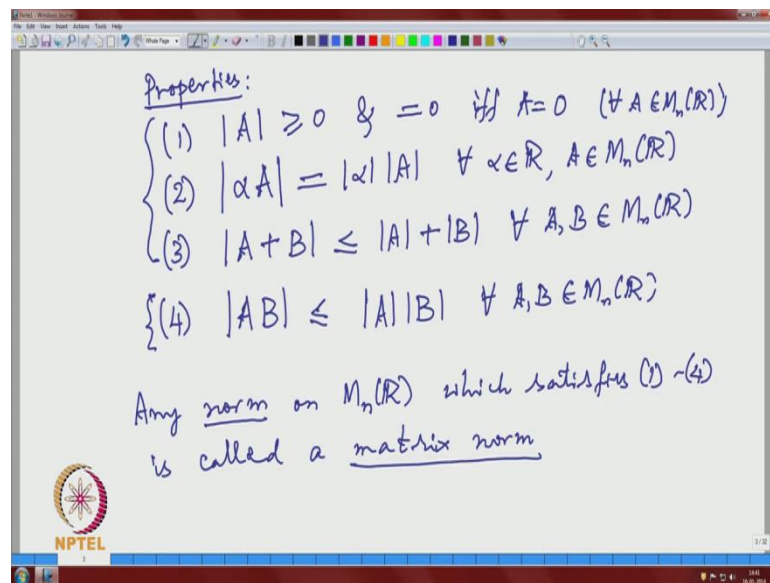 Note1 - Windows Journal
File Edit View Insert Actions Tools Help
Properties:
(1) |A| ≥ 0 & = 0 iff A = 0 (∀ A ∈ Mₙ(ℝ))
(2) |αA| = |α| |A| ∀ α ∈ ℝ, A ∈ Mₙ(ℝ)
(3) |A + B| ≤ |A| + |B| ∀ A, B ∈ Mₙ(ℝ)
(4) |AB| ≤ |A| |B| ∀ A, B ∈ Mₙ(ℝ)
Any norm on Mₙ(ℝ) which satisfies (1) ~ (4)
is called a matrix norm
NPTEL